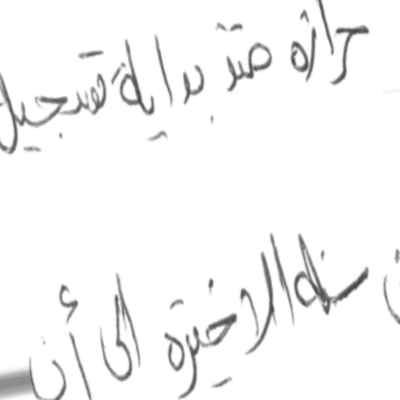 حرارة منذ بداية تسجيل
سنة الاخيرة الى أن